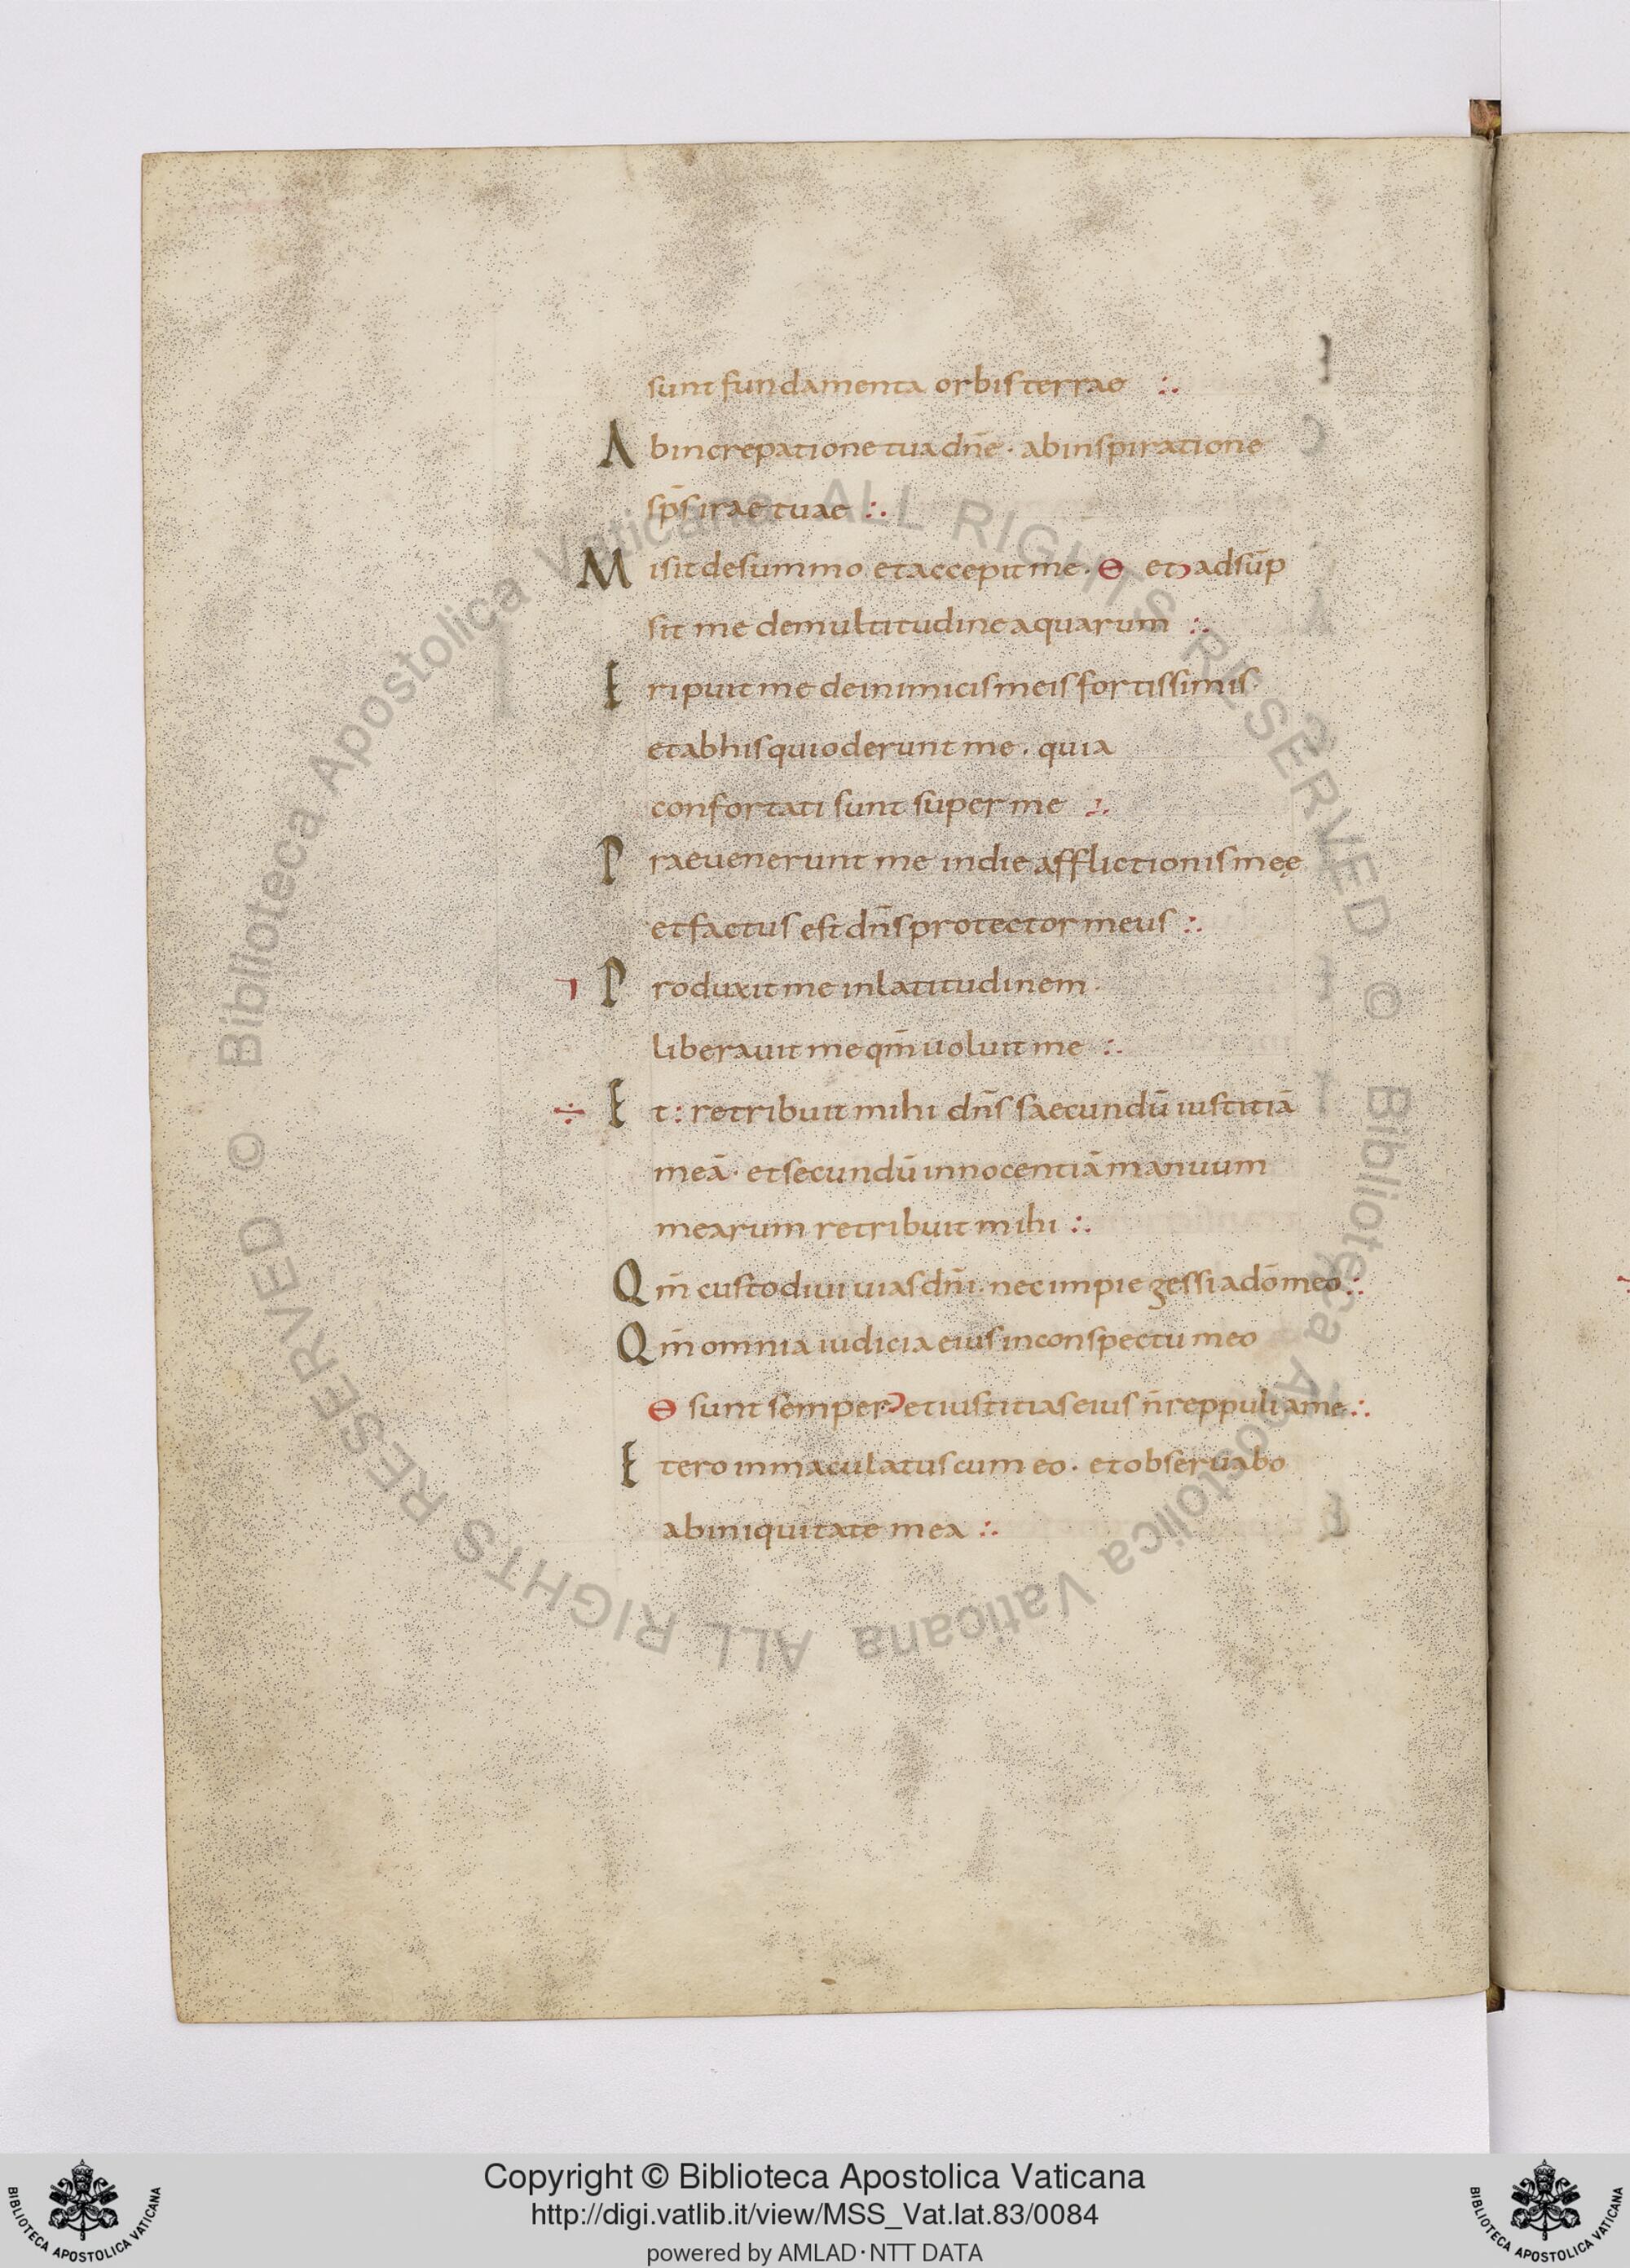 sunt fundamenta orbis terrae :.
Ab increpatione tua dn̄e · ab inspiratione
sp̄s irae tuae :.
Misit de summo et accepit me · ɵ et ͻ adsūp
sit me de multitudine aquarum :.
Eripuit me de inimicis meis fortissimis ·
et ab his qui oderunt me · quia
confortati sunt super me :.
Praevenerunt me in die afflictionis meę
et factus est dn̄s protector meus :.
⁊ Produxit me in latitudinem ·
liberavit me qm̄ voluit me :.
÷ Et : retribuit mihi dn̄s saecundū iustitiā
meā · et secundū innocentiā manuum
mearum retribuit mihi :.
Qm̄ custodivi vias dn̄i · nec impie gessi a dō meo :.
Qm̄ omnia iudicia eius in conspectu meo
ɵ sunt semper ͻ et iustitias eius n̄ reppuli a me :.
Et ero inmaculatus cum eo · et observabo
ab iniquitate mea :.
© Biblioteca Apostolica Vaticana ALL RIGHTS RESERVED © Biblioteca Apostolica Vaticana ALL RIGHTS RESERVED
Copyright © Biblioteca Apostolica Vaticana
http://digi.vatlib.it/view/MSS_Vat.lat.83/0084
powered by AMLAD·NTT DATA
BIBLIOTECA APOSTOLICA VATICANA
BIBLIOTECA APOSTOLICA VATICANA